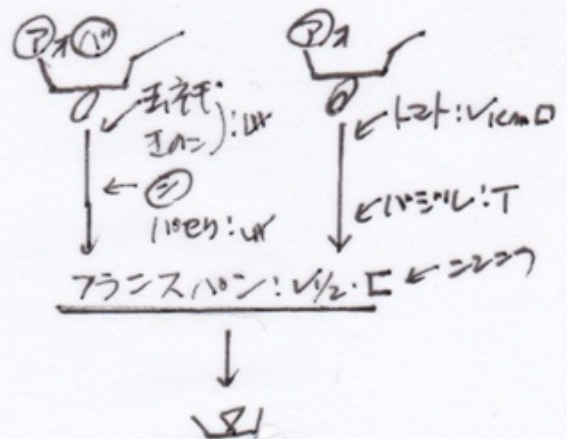 ア オ バ
ア オ
玉ネギ
キノコ
トマト:√1cm□
シ
パセリ:
バジル:T
フランスパン:√1/2・匚 ← ニンニク